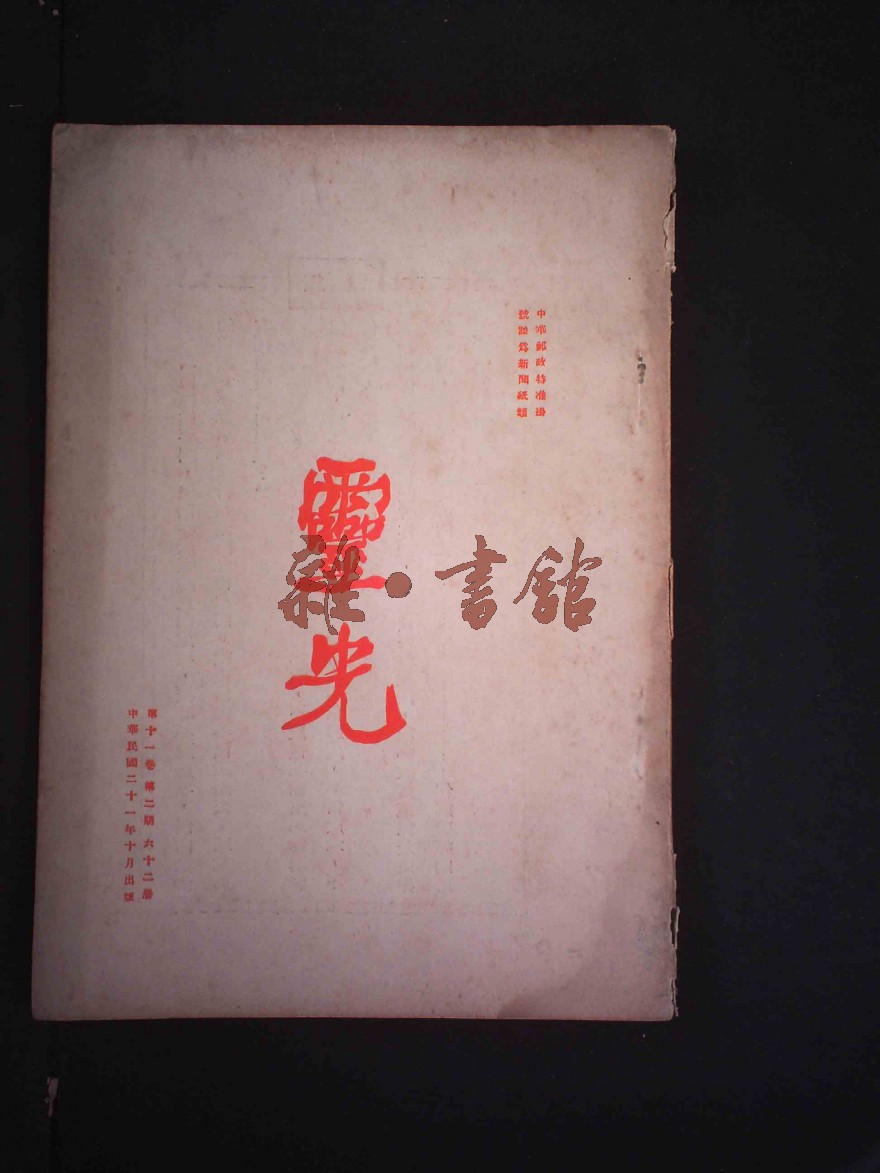 中華郵政特准掛
號認爲新聞紙類
靈光
雜·書館
第十一卷第二期六十二册
中華民國二十一年十月出版